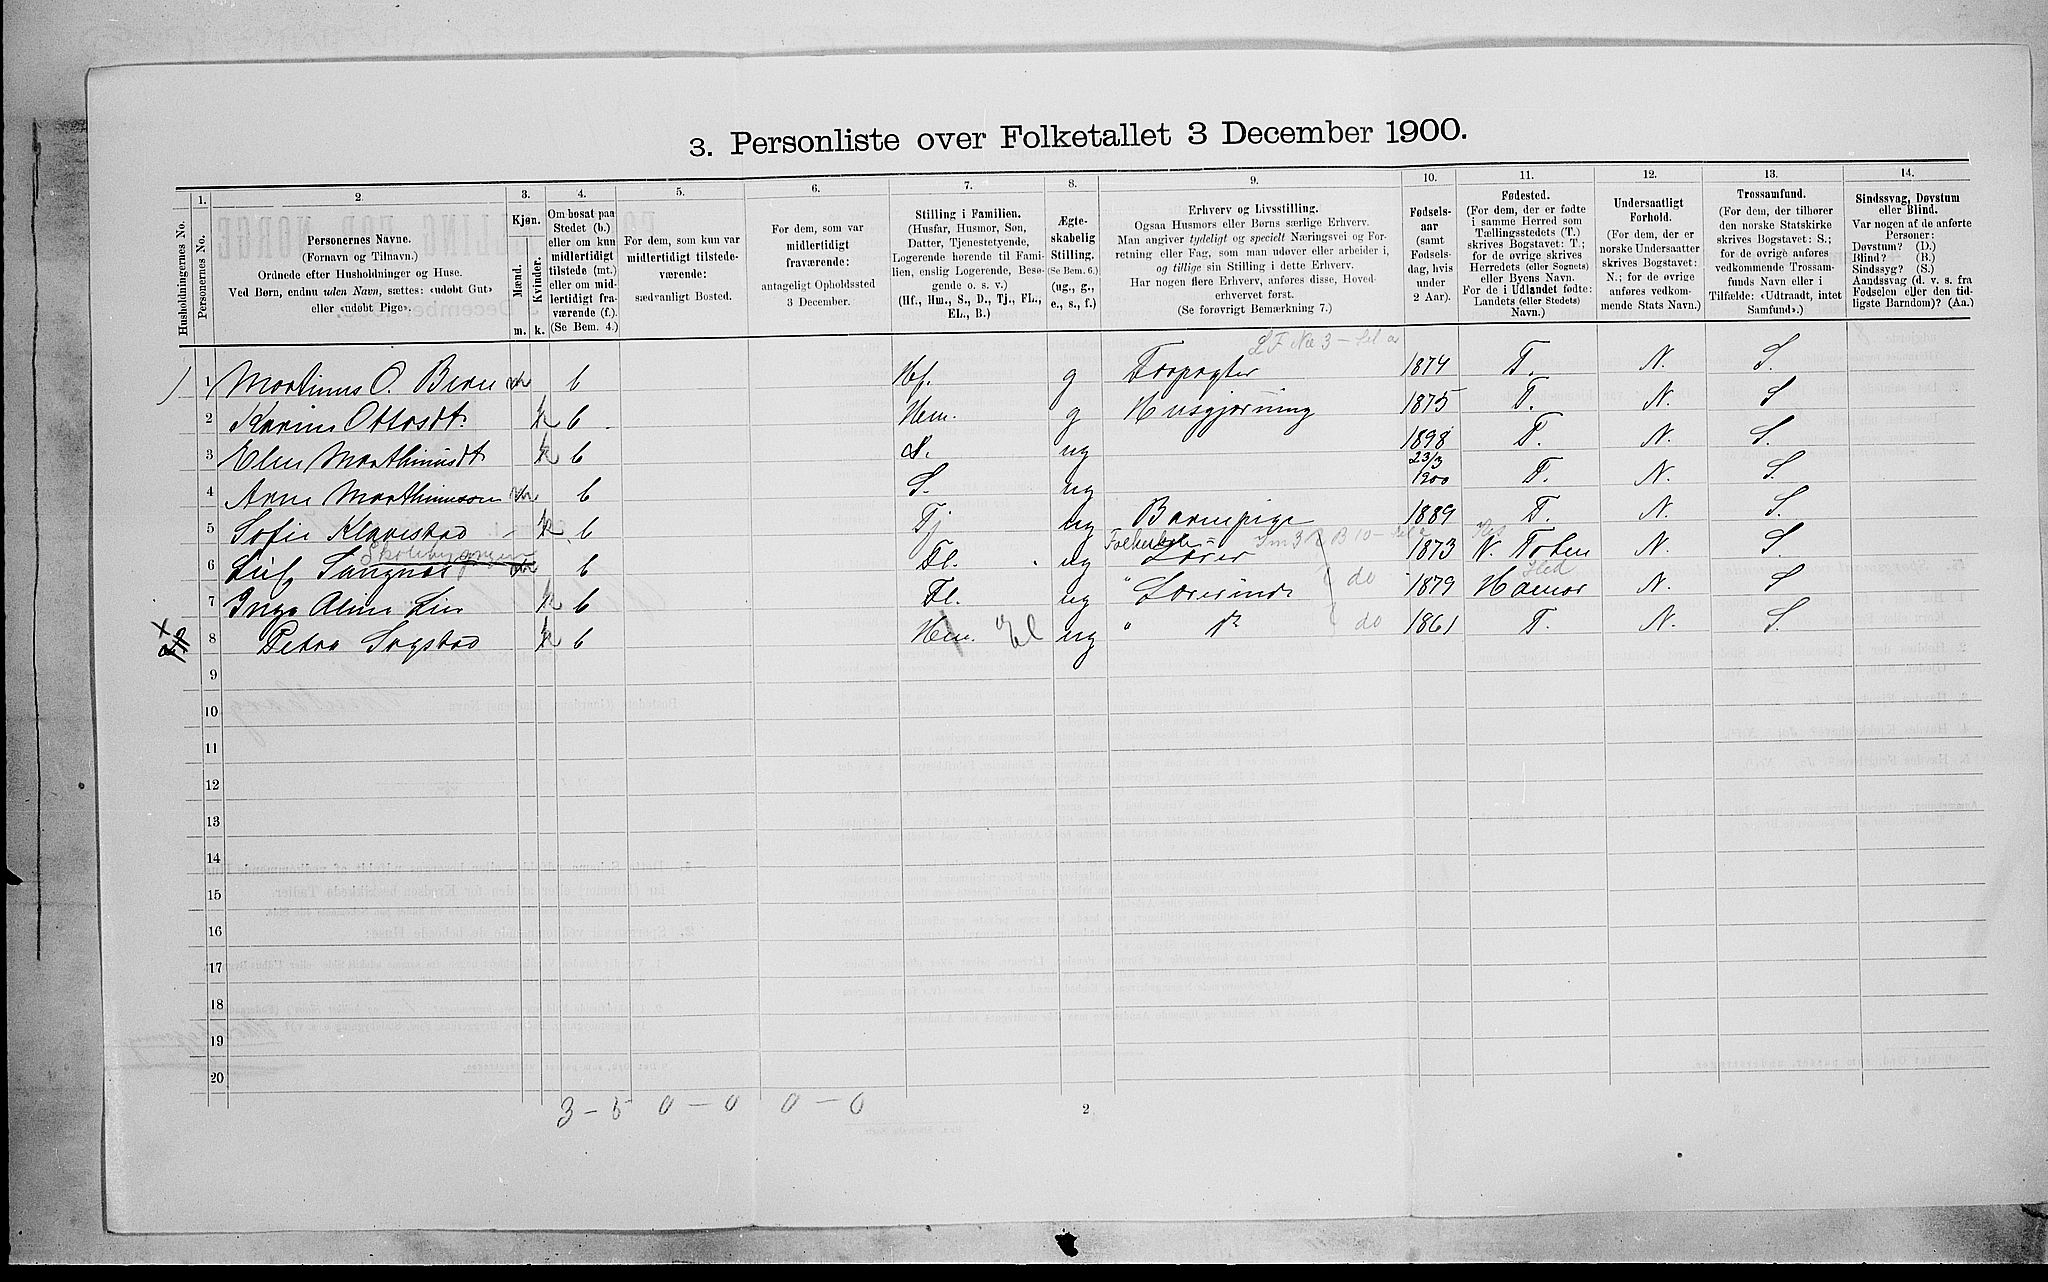 3. Personliste over Folketallet 3 December 1900.
1. 2. 3. 4. 5. 6. 7. 8. 9. 10. 11. 12. 13. 14.
Husholdningernes No.
Personernes No.
Personernes Navne.
(Fornavn og Tilnavn.)
Ordnede efter Husholdninger og Huse.
Ved Børn, endnu uden Navn, sættes: «udøbt Gut»
eller «udøbt Pige».
Kjøn.
Mænd.
Kvinder.
m. k.
Om bosat paa
Stedet (b.)
eller om kun
midlertidigt
tilstede (mt.)
eller om mid-
lertidigt fra-
værende (f.).
(Se Bem. 4.)
For dem, som kun var
midlertidigt tilstede-
værende:
sædvanligt Bosted.
For dem, som var
midlertidigt
fraværende:
antageligt Opholdssted
3 December.
Stilling i Familien.
(Husfar, Husmor, Søn,
Datter, Tjenestetyende,
Logerende hørende til Fami-
lien, enslig Logerende, Besø-
gende o. s. v.)
(Hf., Hm., S., D., Tj., FL.,
EL., B.)
Ægte-
skabelig
Stilling.
(Se Bem. 6.)
(ug., g.,
e., s., f.)
Erhverv og Livsstilling.
Ogsaa Husmors eller Børns særlige Erhverv.
Man angiver tydeligt og specielt Næringsvei og For-
retning eller Fag, som man udøver eller arbeider i,
og tillige sin Stilling i dette Erhverv.
Har nogen flere Erhverv, anføres disse, Hoved-
erhvervet først.
(Se forøvrigt Bemærkning 7.)
Fødsels-
aar
(samt
Fødsels-
dag, hvis
under
2 Aar).
Fødested.
(For dem, der er fødte
i samme Herred som
Tællingsstedets (T.)
skrives Bogstavet: T.;
for de øvrige skrives
Herredets (eller Sognets)
eller Byens Navn.
For de i Udlandet fødte:
Landets (eller Stedets)
Navn.)
Undersaatligt
Forhold.
(For dem, der er
norske Undersaatter
skrives Bogstavet:
N.; for de øvrige
anføres vedkom-
mende Stats Navn.)
Trossamfund.
(For dem, der tilhører
den norske Statskirke
skrives Bogstavet: S.;
for de øvrige anføres
vedkommende Trossam-
funds Navn eller i
Tilfælde: «Udtraadt, intet
Samfund».)
Sindssvag, Døvstum
eller Blind.
Var nogen af de anførte
Personer:
Døvstum? (D.)
Blind? (B.)
Sindssyg? (S.)
Aandssvag (d. v. s. fra
Fødselen eller den tid-
ligste Barndom)? (Aa.)
1 Martinus O. Bern m b Hf. g Forpagter 1874 T. N. S.
2 Karine Ottosdt. k b Hm. g Husgjørning 1875 T. N. S
3 Elen Marthinusdt k b D. ug 1898 T. N. S.
4 Arne Marthinusson m b S. ug 23/3 1900 T. N. S.
5 Sofie Klavestad k b Tj ug Barnepige 1889 T. N. S.
6 m b Fl. ug Lærer 1873 N. Toten N. S.
7 Inga Lie k b Fl. ug " Lærerinde do 1879 Hamar N. S
8 Petra Sogstad k b Hm. El ug " do 1861 T. N. S.
9
10
11
12
13
14
15
16
17
18
19
20
3 – 5 0 – 0 0 – 0
2